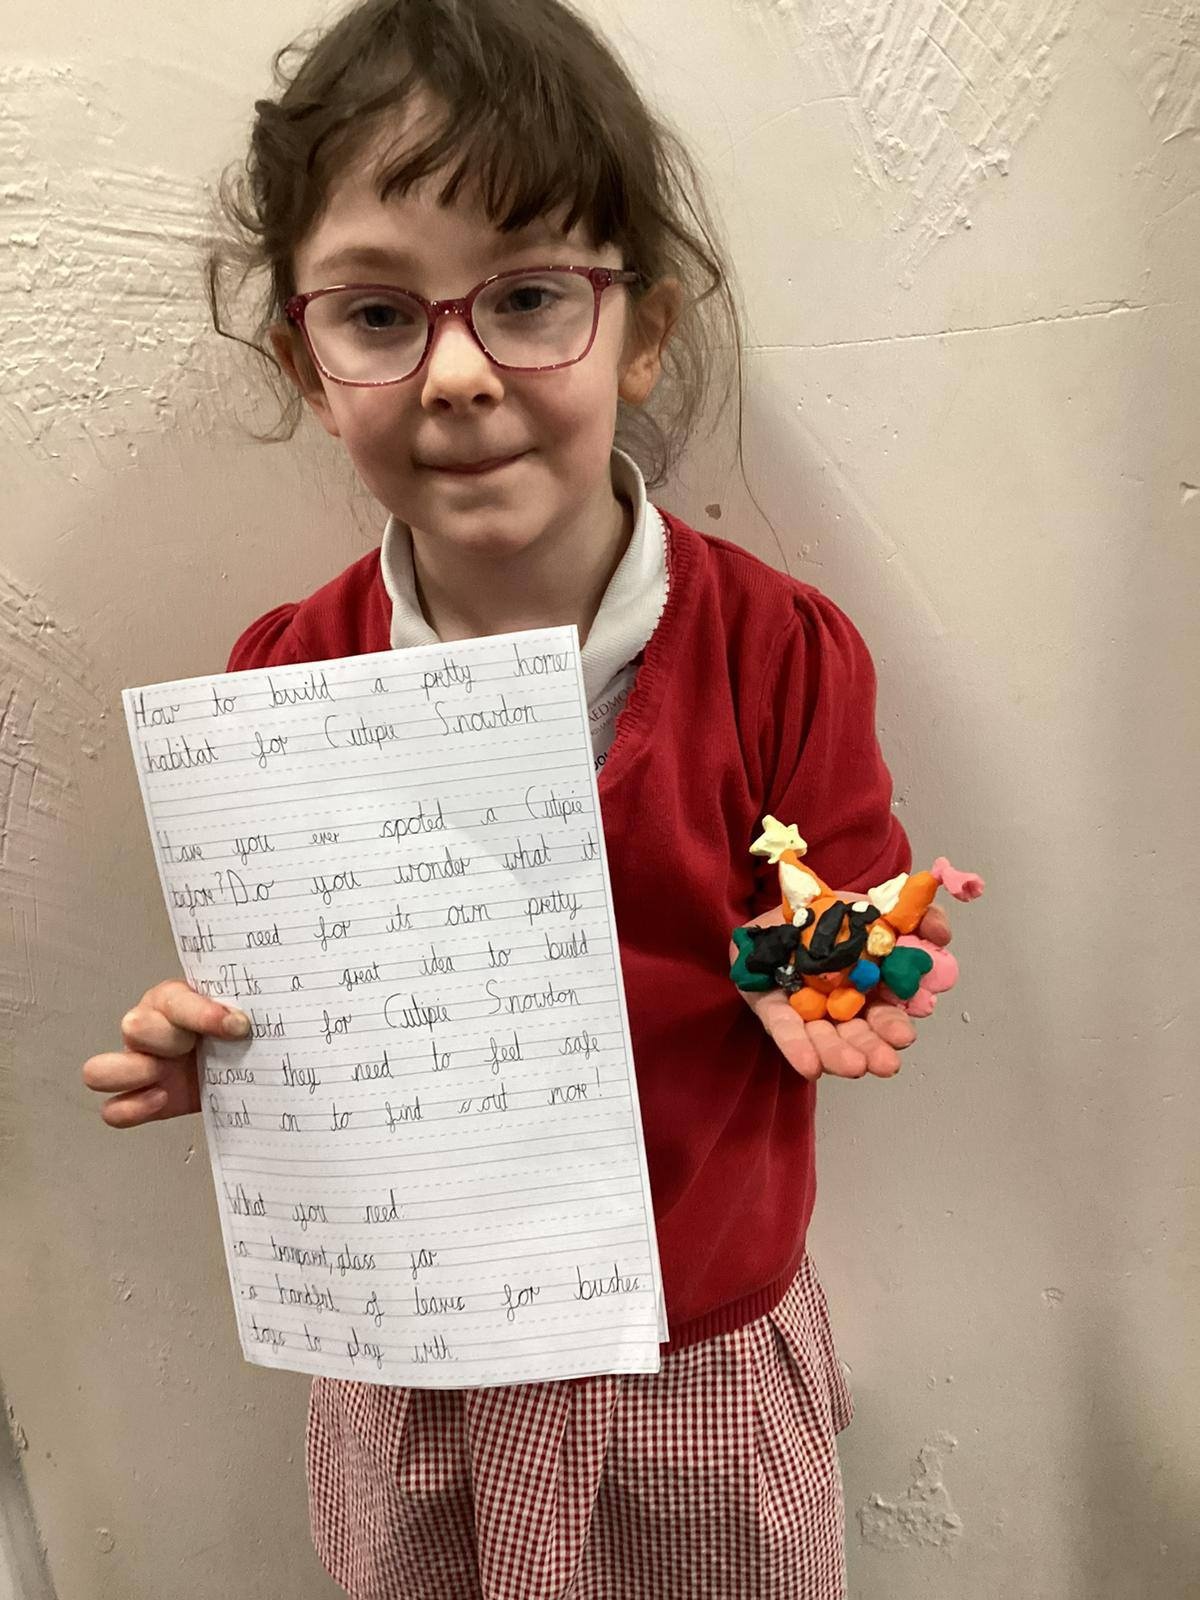 How to build a pretty home
habitat for Cutipie Snowdon
Have you ever spoted a Cutipie
before? Do you wonder what it
might need for its own pretty
home? It's a great idea to build
habitat for Cutipie Snowdon
because they need to feel safe
Read on to find out more!
What you need.
·a tranparent, glass jar.
·a handful of leaves for bushes.
toys to play with.